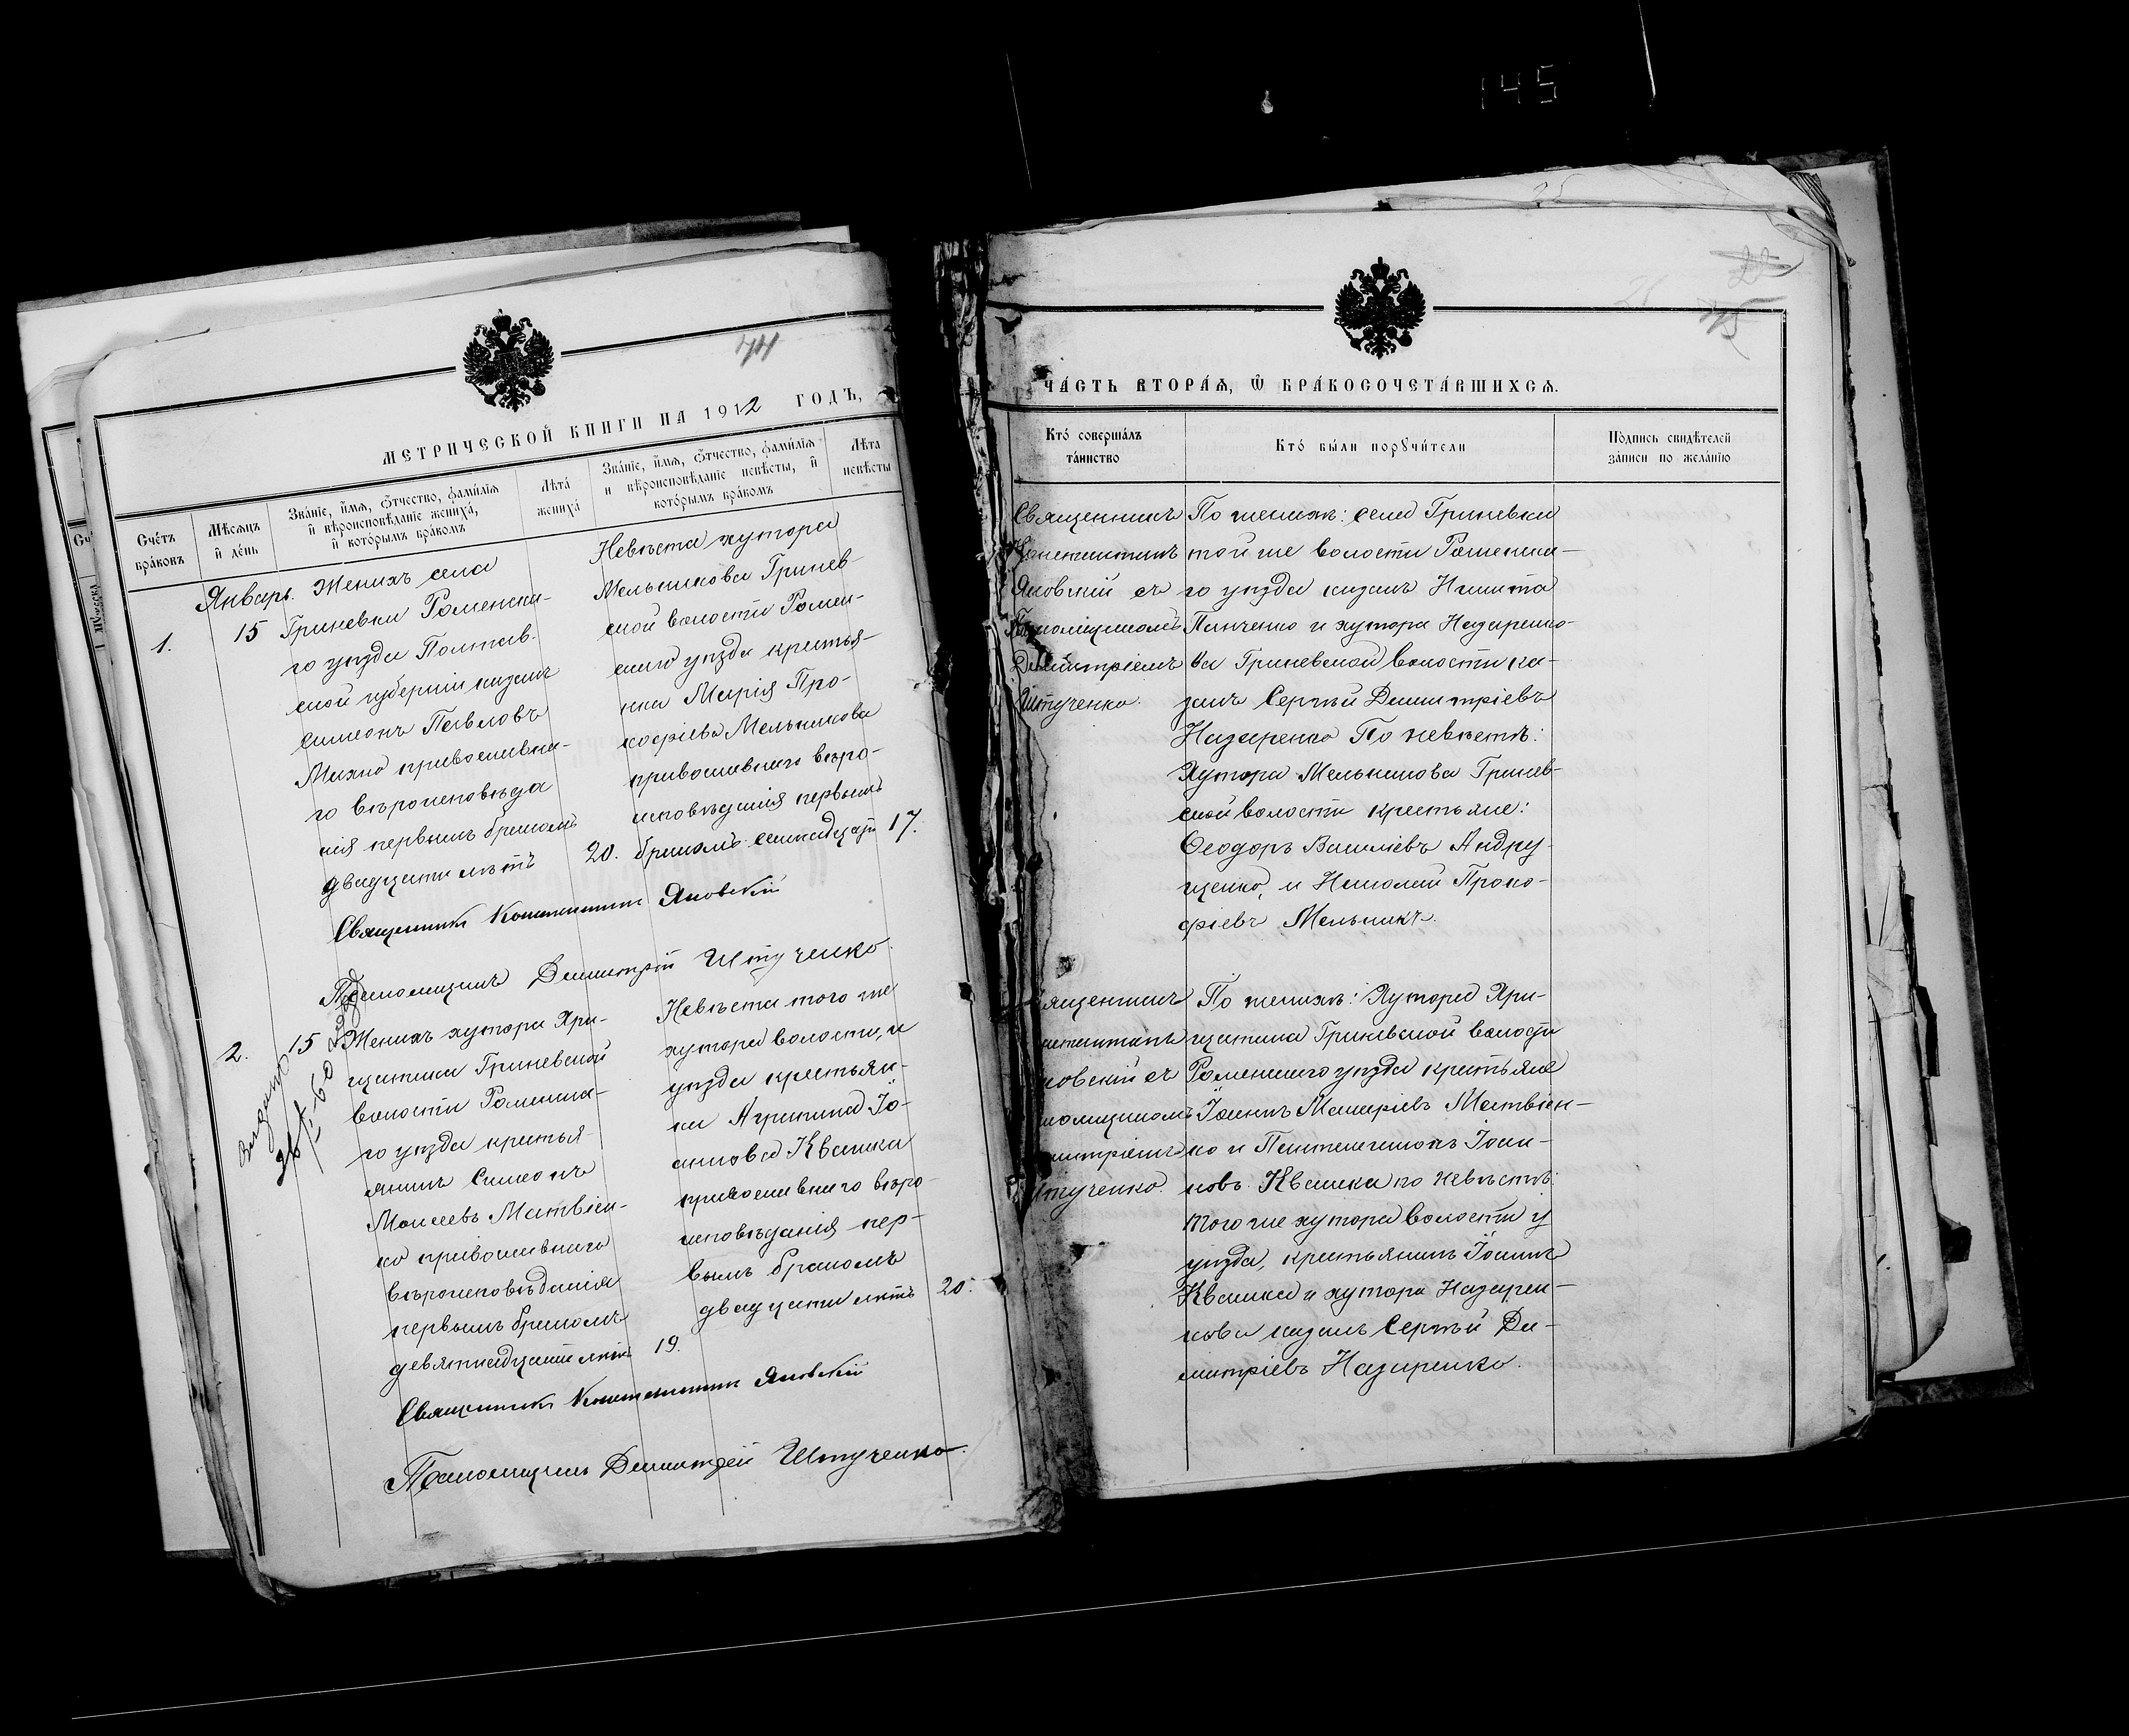 145
44
МЕТРИЧЕСКОЙ КНИГИ НА 1912 ГОДЪ,
Счетъ браковъ
Мѣсяцъ и день
Званіе, имя, отчество, фамилія и вѣроисповѣданіе жениха, и которымъ бракомъ
Лѣта жениха
Званіе, имя, отчество, фамилія и вѣроисповѣданіе невѣсты, и которымъ бракомъ
Лѣта невѣсты
Январь.
1.
15
Женихъ села
Гриневки Роменска-
го уѣзда Полтав-
ской губерніи казакъ
Симеонъ Павловъ
Михно православна-
го вѣроисповѣда
нія первымъ бракомъ
двадцати лѣтъ
20.
Невѣста хутора
Мельникова Гринев-
ской волости Ромен-
скаго уѣзда крестья-
нка Марія Про-
кофіева Мельникова
православнаго вѣро-
исповѣданія первымъ
бракомъ семнадцати
17.
Священникъ Константинъ Яновскій
Псаломщикъ Димитрій Штученко
2.
15
Женихъ хутора Хри-
щатика Гриневской
волости Роменска-
го уѣзда крестья-
янинъ Симеонъ
Моисеевъ Матвіен-
ко православнаго
вѣроисповѣданія
первымъ бракомъ
девятнадцати лѣтъ
19.
Невѣста того же
хутора волости, и
уѣзда крестьян-
ка Агрипина Іо-
аннова Квашка
православнаго вѣро-
исповѣданія пер-
вымъ бракомъ
двадцати лѣтъ
20.
Священникъ Константинъ Яновскій
Псаломщикъ Димитрій Штученко
ЧАСТЬ ВТОРАЯ, Ѡ БРАКОСОЧЕТАВШИХСЯ.
Кто совершалъ таинство
Кто были поручители
Подпись свидѣтелей записи по желанію
Священникъ
Константинъ
Яновскій съ
Псаломщикомъ
Димитріемъ
Штученко.
По женихѣ: села Гриневки
той же волости Роменска-
го уѣзда казакъ Никита
Панченко и хутора Назаренко-
ва Гриневской волости ка-
закъ Сергѣй Димитріевъ
Назаренко По невѣстѣ:
Хутора Мельникова Гринев-
ской волости крестьяне:
Ѳеодоръ Василіевъ Андру-
щенко, и Николай Проко-
фіевъ Мельникъ.
ященникъ
нстантинъ
новскій съ
аломщикомъ
имитріемъ
Штученко.
По женихѣ: Хутора Хри-
щатика Гриневской волости
Роменскаго уѣзда крестьяне
Іоаннъ Макаріевъ Матвіен-
ко и Пантелеимонъ Іоан-
новъ Квашка по невѣстѣ:
того же хутора волости и
уѣзда, крестьянинъ Іоаннъ
Квашка и хутора Назарен-
кова казакъ Сергѣй Ди-
митріевъ Назаренко.